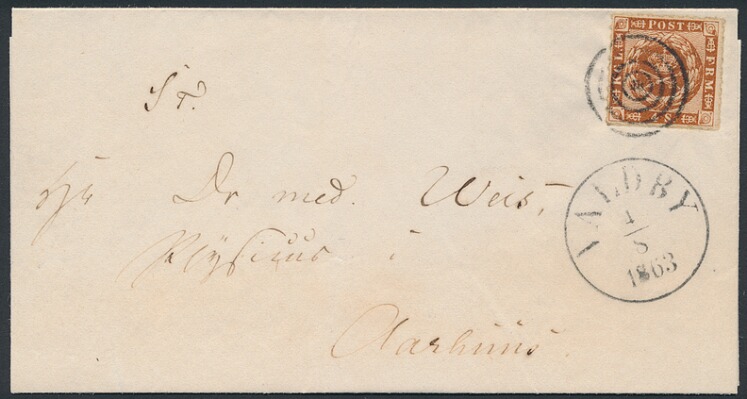 POST
KGL
FRM
S. T.
Dr med. Weis,
Physicus i
Aarhuus.
VALDBY
4
8
1863